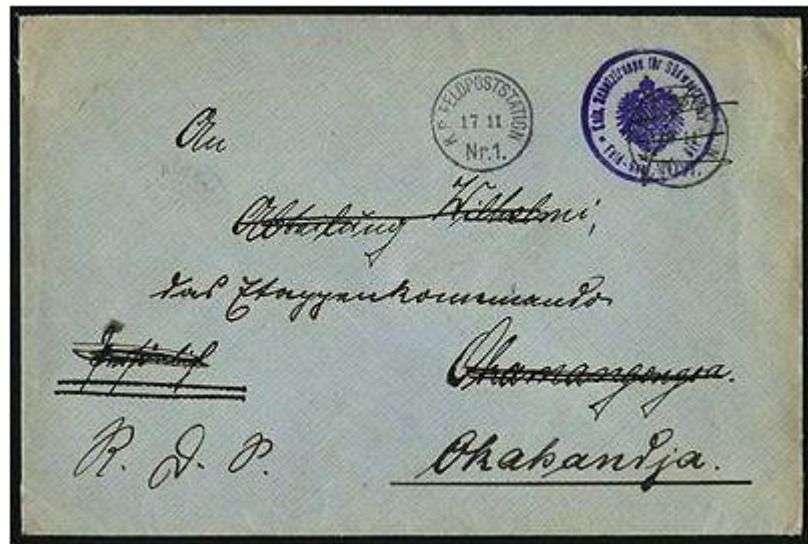 K.D. FELDPOSTSTATION
17 11
Nr. 1.
Kais. Schutztruppe für Südwestafrika
An
Abteilung Wilhelmi,
das Etappenkommando
Persönlich
R. D. S.
Okahandja.